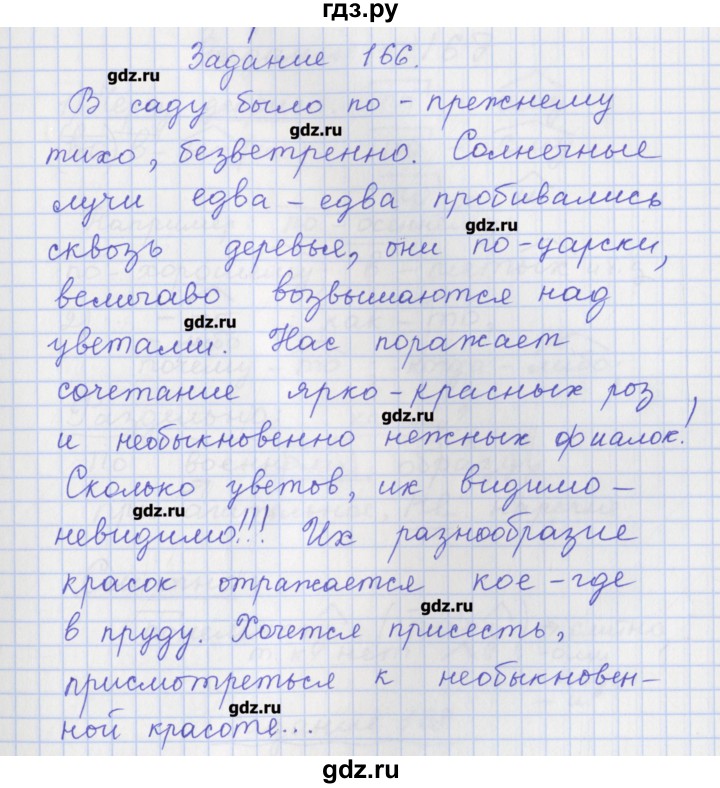 гдз.ру
Задание 166.
gdz.ru
В саду было по-прежнему
gdz.ru
тихо, безветренно. Солнечные
лучи едва-едва пробивались
gdz.ru
сквозь деревья, они по-царски,
величаво возвышаются над
gdz.ru
цветами. Нас поражает
сочетание ярко-красных роз
gdz.ru
и необыкновенно нежных фиалок!
Сколько цветов, их видимо-
gdz.ru
невидимо!!! Их разнообразие
красок отражается кое-где
gdz.ru
в пруду. Хочется присесть,
присмотреться к необыкновен-
gdz.ru
ной красоте...
gdz.ru